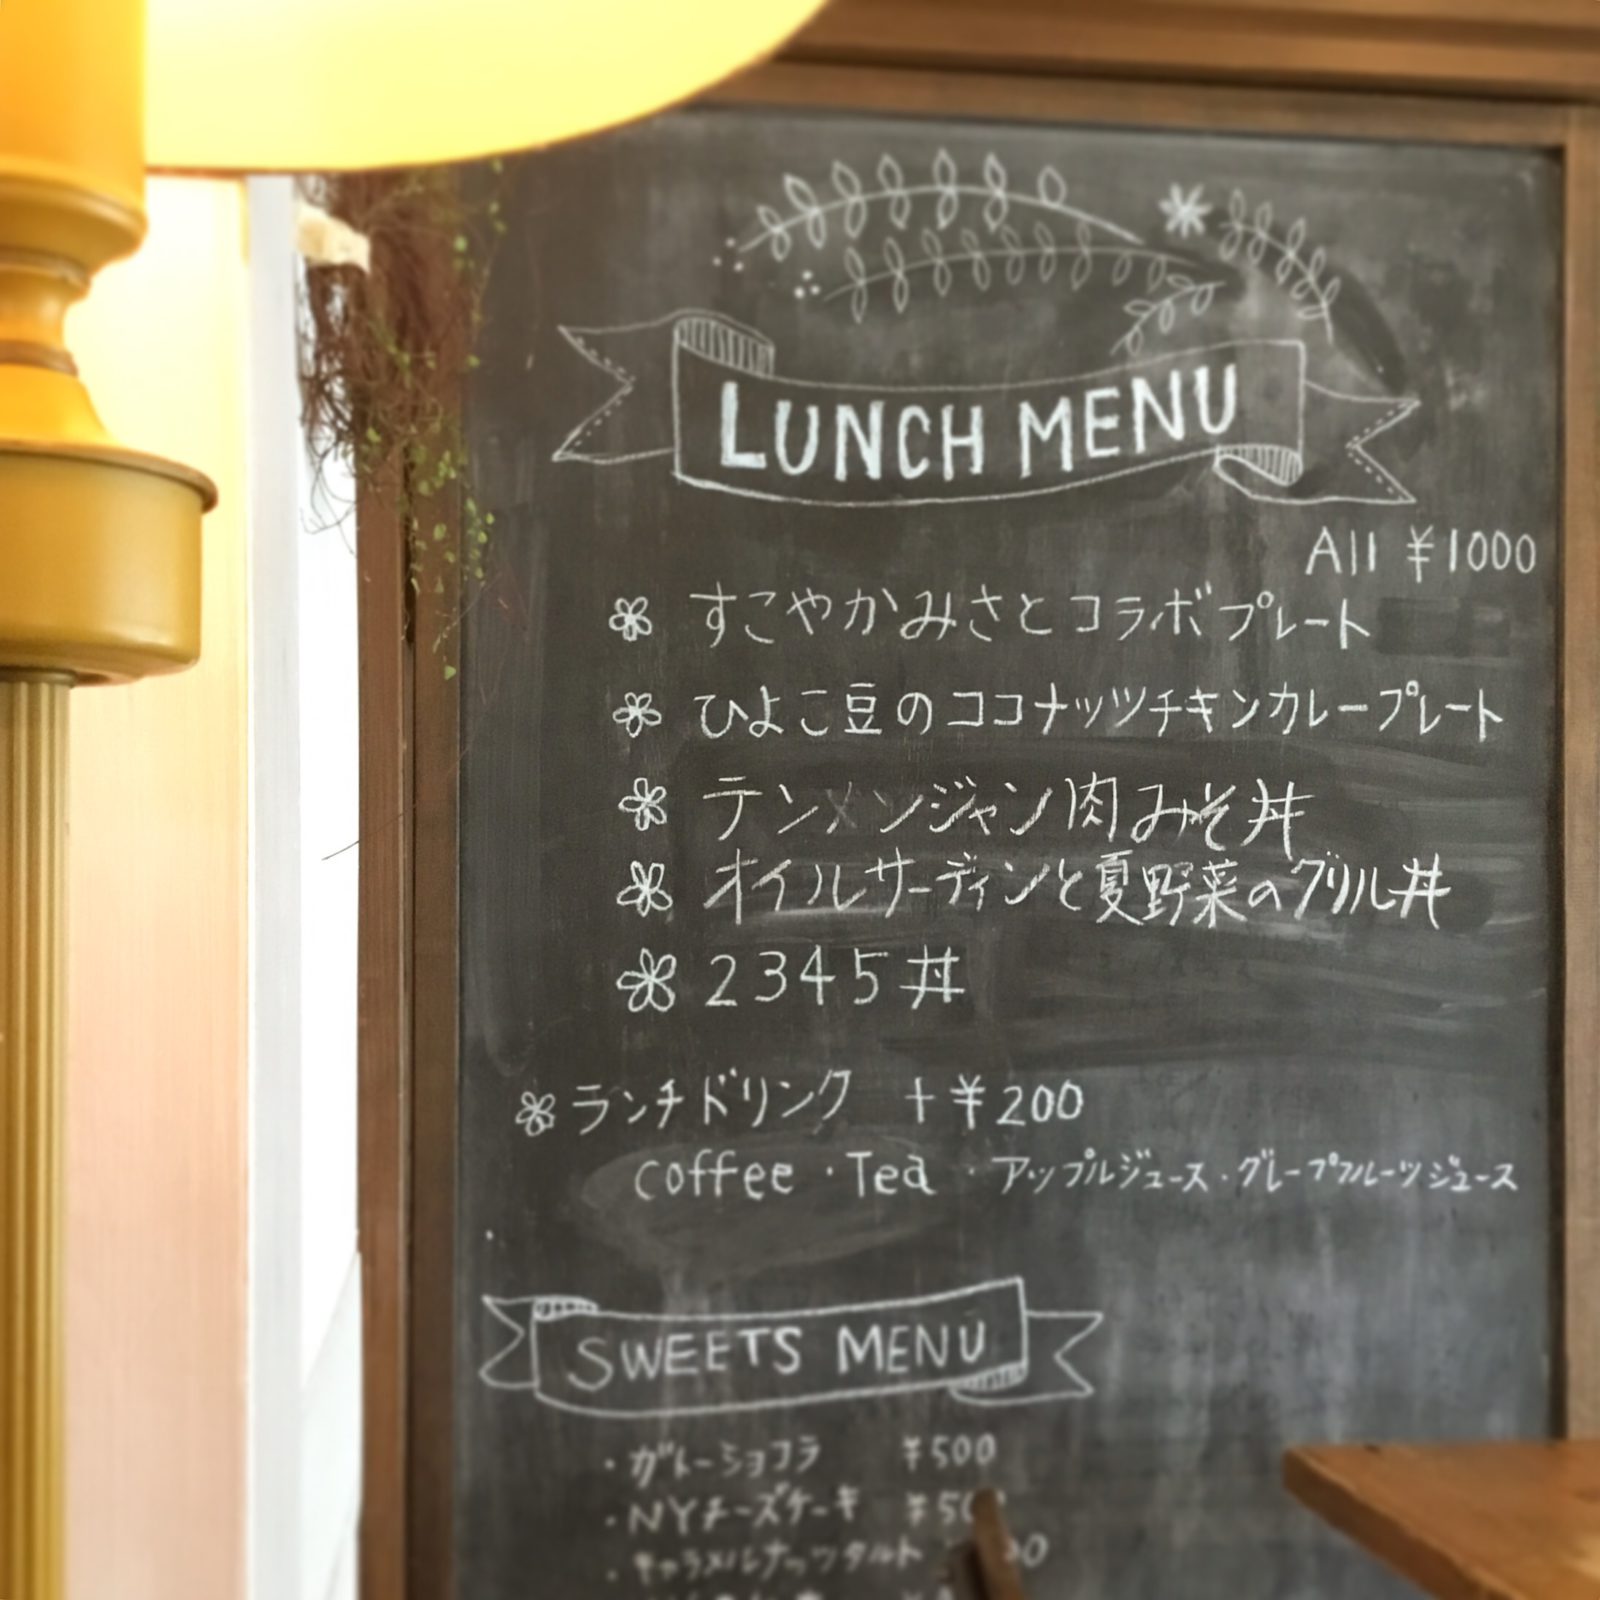 LUNCH MENU
All ¥1000
すこやかみさとコラボプレート
ひよこ豆のココナッツチキンカレープレート
テンメンジャン肉みそ丼
オイルサーディンと夏野菜のグリル丼
2345丼
ランチドリンク +¥200
coffee・Tea・アップルジュース・グレープフルーツジュース
SWEETS MENU
・ガトーショコラ ¥500
・NYチーズケーキ
・キャラメルナッツタルト